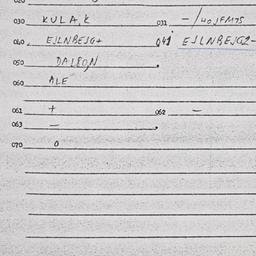 030 KULA,K 031 -/40,JFMTS
040 EJLNBEJG+ 041 EJLNBEJG2-
050 DALEON
060 ALE
061 + 062 -
063 -
070 0